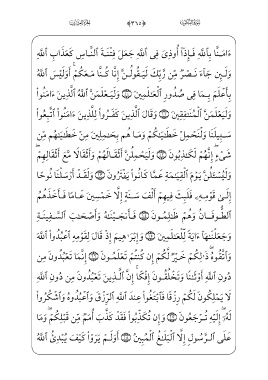 ءَامَنَّا بِٱللَّهِ فَإِذَآ أُوذِىَ فِى ٱللَّهِ جَعَلَ فِتْنَةَ ٱلنَّاسِ كَعَذَابِ ٱللَّهِ
وَلَئِن جَآءَ نَصْرٌ مِّن رَّبِّكَ لَيَقُولُنَّ إِنَّا كُنَّا مَعَكُمْ أَوَلَيْسَ ٱللَّهُ
بِأَعْلَمَ بِمَا فِى صُدُورِ ٱلْعَٰلَمِينَ وَلَيَعْلَمَنَّ ٱللَّهُ ٱلَّذِينَ ءَامَنُوا۟
وَلَيَعْلَمَنَّ ٱلْمُنَٰفِقِينَ وَقَالَ ٱلَّذِينَ كَفَرُوا۟ لِلَّذِينَ ءَامَنُوا۟ ٱتَّبِعُوا۟
سَبِيلَنَا وَلْنَحْمِلْ خَطَٰيَٰكُمْ وَمَا هُم بِحَٰمِلِينَ مِنْ خَطَٰيَٰهُم مِّن
شَىْءٍ إِنَّهُمْ لَكَٰذِبُونَ وَلَيَحْمِلُنَّ أَثْقَالَهُمْ وَأَثْقَالًا مَّعَ أَثْقَالِهِمْ
وَلَيُسْـَٔلُنَّ يَوْمَ ٱلْقِيَٰمَةِ عَمَّا كَانُوا۟ يَفْتَرُونَ وَلَقَدْ أَرْسَلْنَا نُوحًا
إِلَىٰ قَوْمِهِۦ فَلَبِثَ فِيهِمْ أَلْفَ سَنَةٍ إِلَّا خَمْسِينَ عَامًا فَأَخَذَهُمُ
ٱلطُّوفَانُ وَهُمْ ظَٰلِمُونَ فَأَنجَيْنَٰهُ وَأَصْحَٰبَ ٱلسَّفِينَةِ
وَجَعَلْنَٰهَآ ءَايَةً لِّلْعَٰلَمِينَ وَإِبْرَٰهِيمَ إِذْ قَالَ لِقَوْمِهِ ٱعْبُدُوا۟ ٱللَّهَ
وَٱتَّقُوهُ ذَٰلِكُمْ خَيْرٌ لَّكُمْ إِن كُنتُمْ تَعْلَمُونَ إِنَّمَا تَعْبُدُونَ مِن
دُونِ ٱللَّهِ أَوْثَٰنًا وَتَخْلُقُونَ إِفْكًا إِنَّ ٱلَّذِينَ تَعْبُدُونَ مِن دُونِ ٱللَّهِ
لَا يَمْلِكُونَ لَكُمْ رِزْقًا فَٱبْتَغُوا۟ عِندَ ٱللَّهِ ٱلرِّزْقَ وَٱعْبُدُوهُ وَٱشْكُرُوا۟
لَهُۥٓ إِلَيْهِ تُرْجَعُونَ وَإِن تُكَذِّبُوا۟ فَقَدْ كَذَّبَ أُمَمٌ مِّن قَبْلِكُمْ وَمَا
عَلَى ٱلرَّسُولِ إِلَّا ٱلْبَلَٰغُ ٱلْمُبِينُ أَوَلَمْ يَرَوْا۟ كَيْفَ يُبْدِئُ ٱللَّهُ